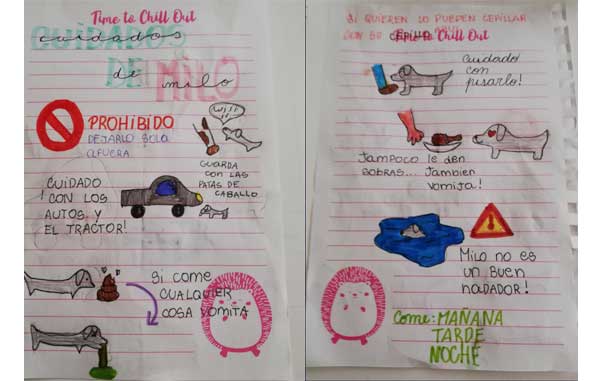 Time to Chill Out
CUIDADOS
cuidados
DE MILO
de milo
PROHIBIDO
DEJARLO SOLO
AFUERA
GUARDA
CON LAS
PATAS DE
CABALLO
¡CUIDADO
CON LOS
AUTOS Y
EL TRACTOR!
SI COME
CUALQUIER
COSA VOMITA
SI QUIEREN LO PUEDEN CEPILLAR
CON SU CEPILLO
Time to Chill Out
Cuidado
con
pisarlo!
Tampoco le den
sobras... Tambien
vomita!
Milo no es
un buen
nadador!
Come: MAÑANA
TARDE
NOCHE